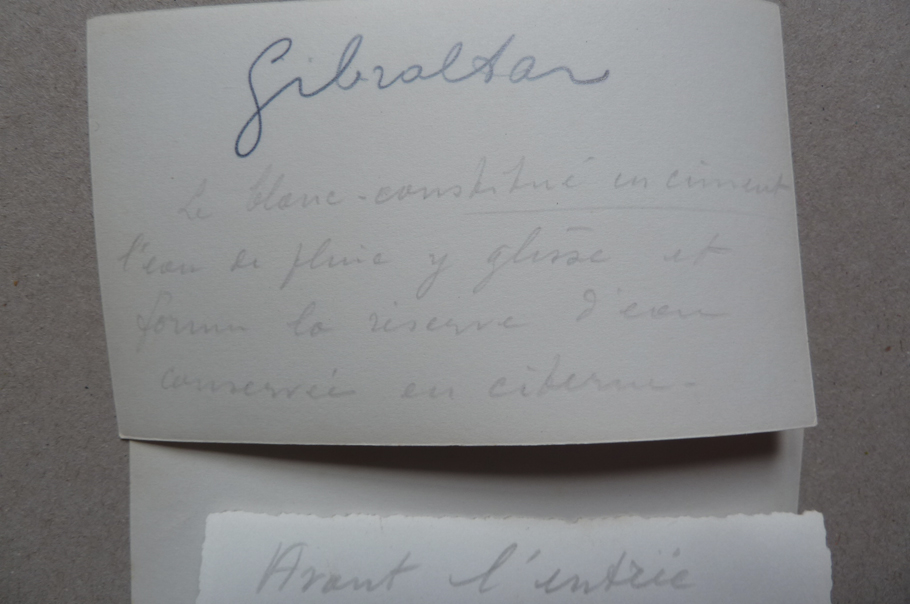 Gibraltar
Le blanc - constitué en ciment
l'eau de pluie y glisse et
forme la réserve d'eau
conservée en citerne -
Avant l'entrée